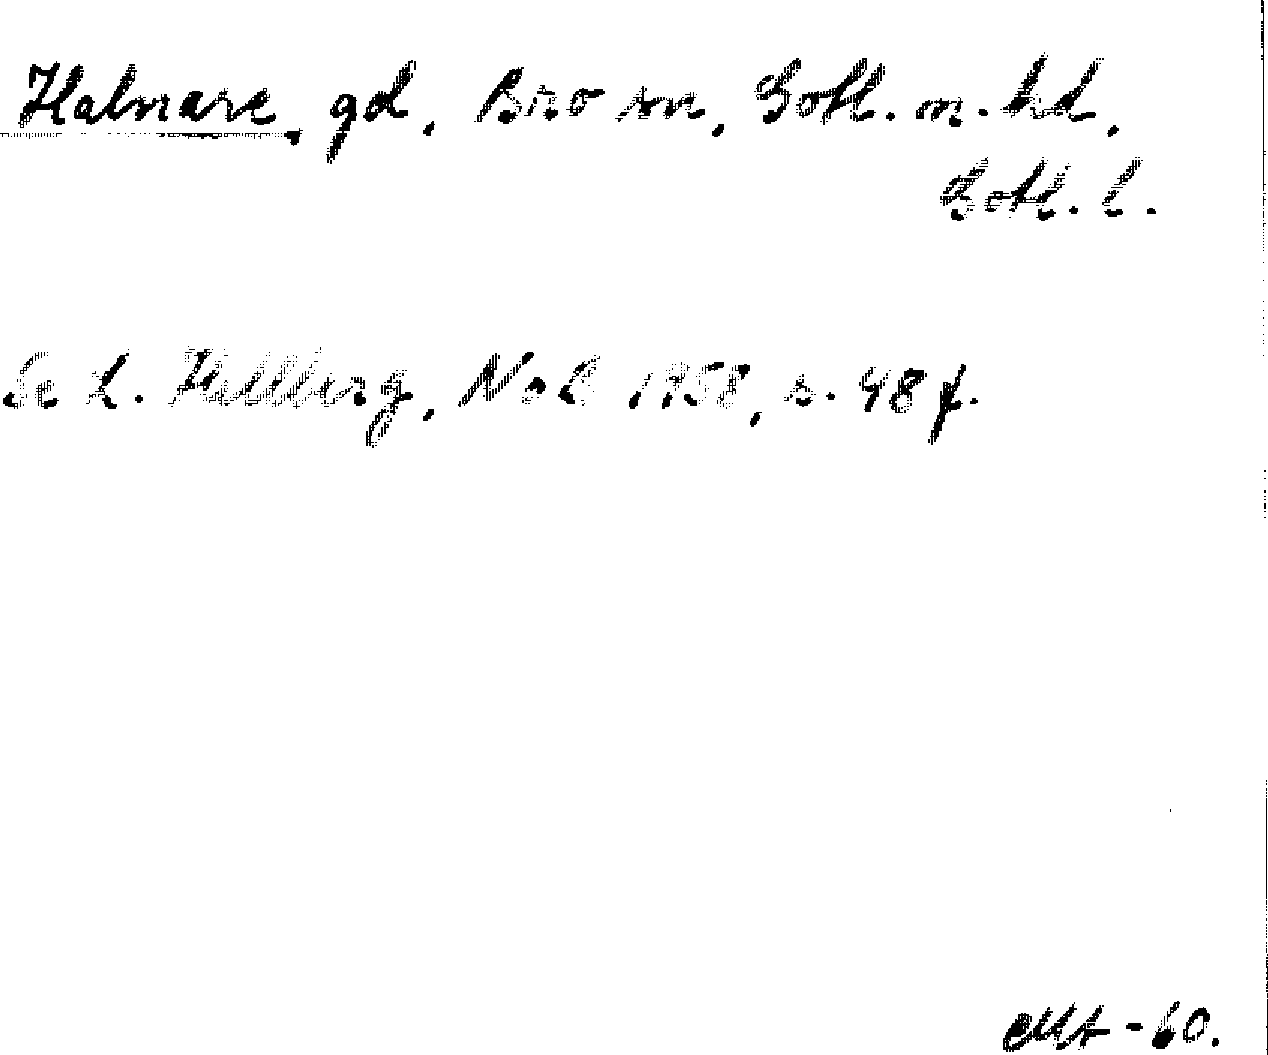 Halnare, gd, Bro sn, Gotl. n. hd,
Gotl. l.
Se L. Hellberg, NoB 1958, s. 48 f.
-60.